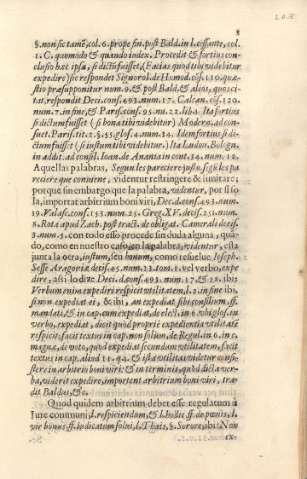 8
§. non sic tamẽ, col. 6. prope fin. post Bald. in l. cessante, col.
1. C. quomodo & quando index. Procedit & fortius con-
clusio hæc ipsa, si dictũ fuisset, (Facias quod tibi videbitur
expedire) sic respondet Signorol. de Homod. cons. 130. quæ-
stio præsupponitur num. 9. & post Bald. & alios, quos ci-
tat, respondit Deci. cons. 493. num. 17. Calcan. cons. 120.
num. 7. in fine, & Paris. cons. 95. nu. 22. lib. 2. Ita fortius
si dictum fuisset (si bona tibi videbitur) Modern. ad con-
suet. Paris. tit. 2. §. 55. glos. 4. num. 24. Idem fortius si di-
ctum fuisset (si iustum tibi videbitur.) Ita Ludou. Bologn.
in addit. ad consil. Ioan. de Anania in cont. 34. num. 12.
A quellas palabras, Segun les pareciere justo, sigẽs les pa
reciere que conuiene, videntur restringere & limitare;
por que sin embargo que la palabra, videntur, por si so
la, importat arbitrium boni viri, Dec. d. cons. 493. num.
19. Valasc. cons. 153. num. 25. Greg. XV. decis. 251. num.
8. Rota apud Zach. post tract. de obligat. Cameral. decis.
3. num. 5. con todo esso procede sin duda alguna, quã-
do, como en nuestro caso, en la palabra, videntur, està
junta la otra, iustum, seu bonum, como resuelue Ioseph.
Sesse Aragoniæ decis. 65. num. 23. tom. 1. vel verbo, expe
dire, alsi lo dize Deci. d. cons. 493. num. 17. & 21. ibi:
Verbum enim expedire respicit vtilitatem, l. 2. in fine ibi,
si non expediat ei, & ibi, an expediat sibi consilium, ff.
mandati, & in cap. cum expediat, de elect. in 6. vbi glos. in
verbo, expediat, dicit quòd propriè expedientia vtilitatẽ
respicit, facit textus in cap. non solum, de Regular. in 6. in c.
magnæ, de voto, quòd expediat secundùm vtilitatem, facit
textus in cap. aliud 11. q. 1. & ista vtilitas videtur consi-
stere in arbitrio boni viri: & in terminis, quòd dicta ver-
ba, viderit expedire, important arbitrium boni viri, tra-
dit Baldus, &c.
Quod quidem arbitrium debet esse regulatum à
Iure communi, l. respiciendum, & l. hodie ff. de pœnis, l.
vir bonus ff. iudicatum solui, l. Thais, §. Sorore, ibi: Non